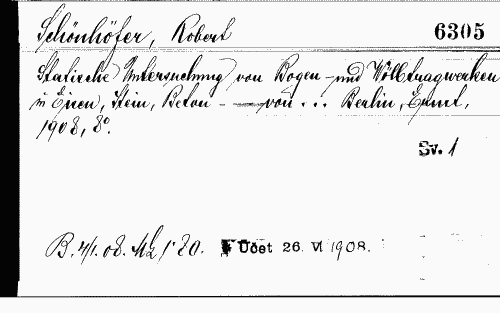 Schönhöfer, Robert
6305
Statische Untersuchung von Bogen- und Wölbtragwerken
in Eisen, Stein, Beton - — von ... Berlin, Ernst,
1908, 8°.
Sv. 1
B. 4/1. 08. Mk 1·80. Účet 26. VI 1908.